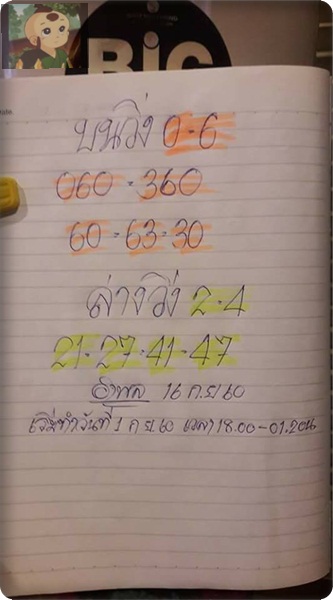 BIG
บนวิ่ง 0-6
060 - 360
60 - 63 - 30
ล่างวิ่ง 2-4
21 - 27 - 41 - 47
อำพล 16 ก.ย 60
เริ่มทำวันที่ 1 ก.ย 60 เวลา 18.00-01.20น